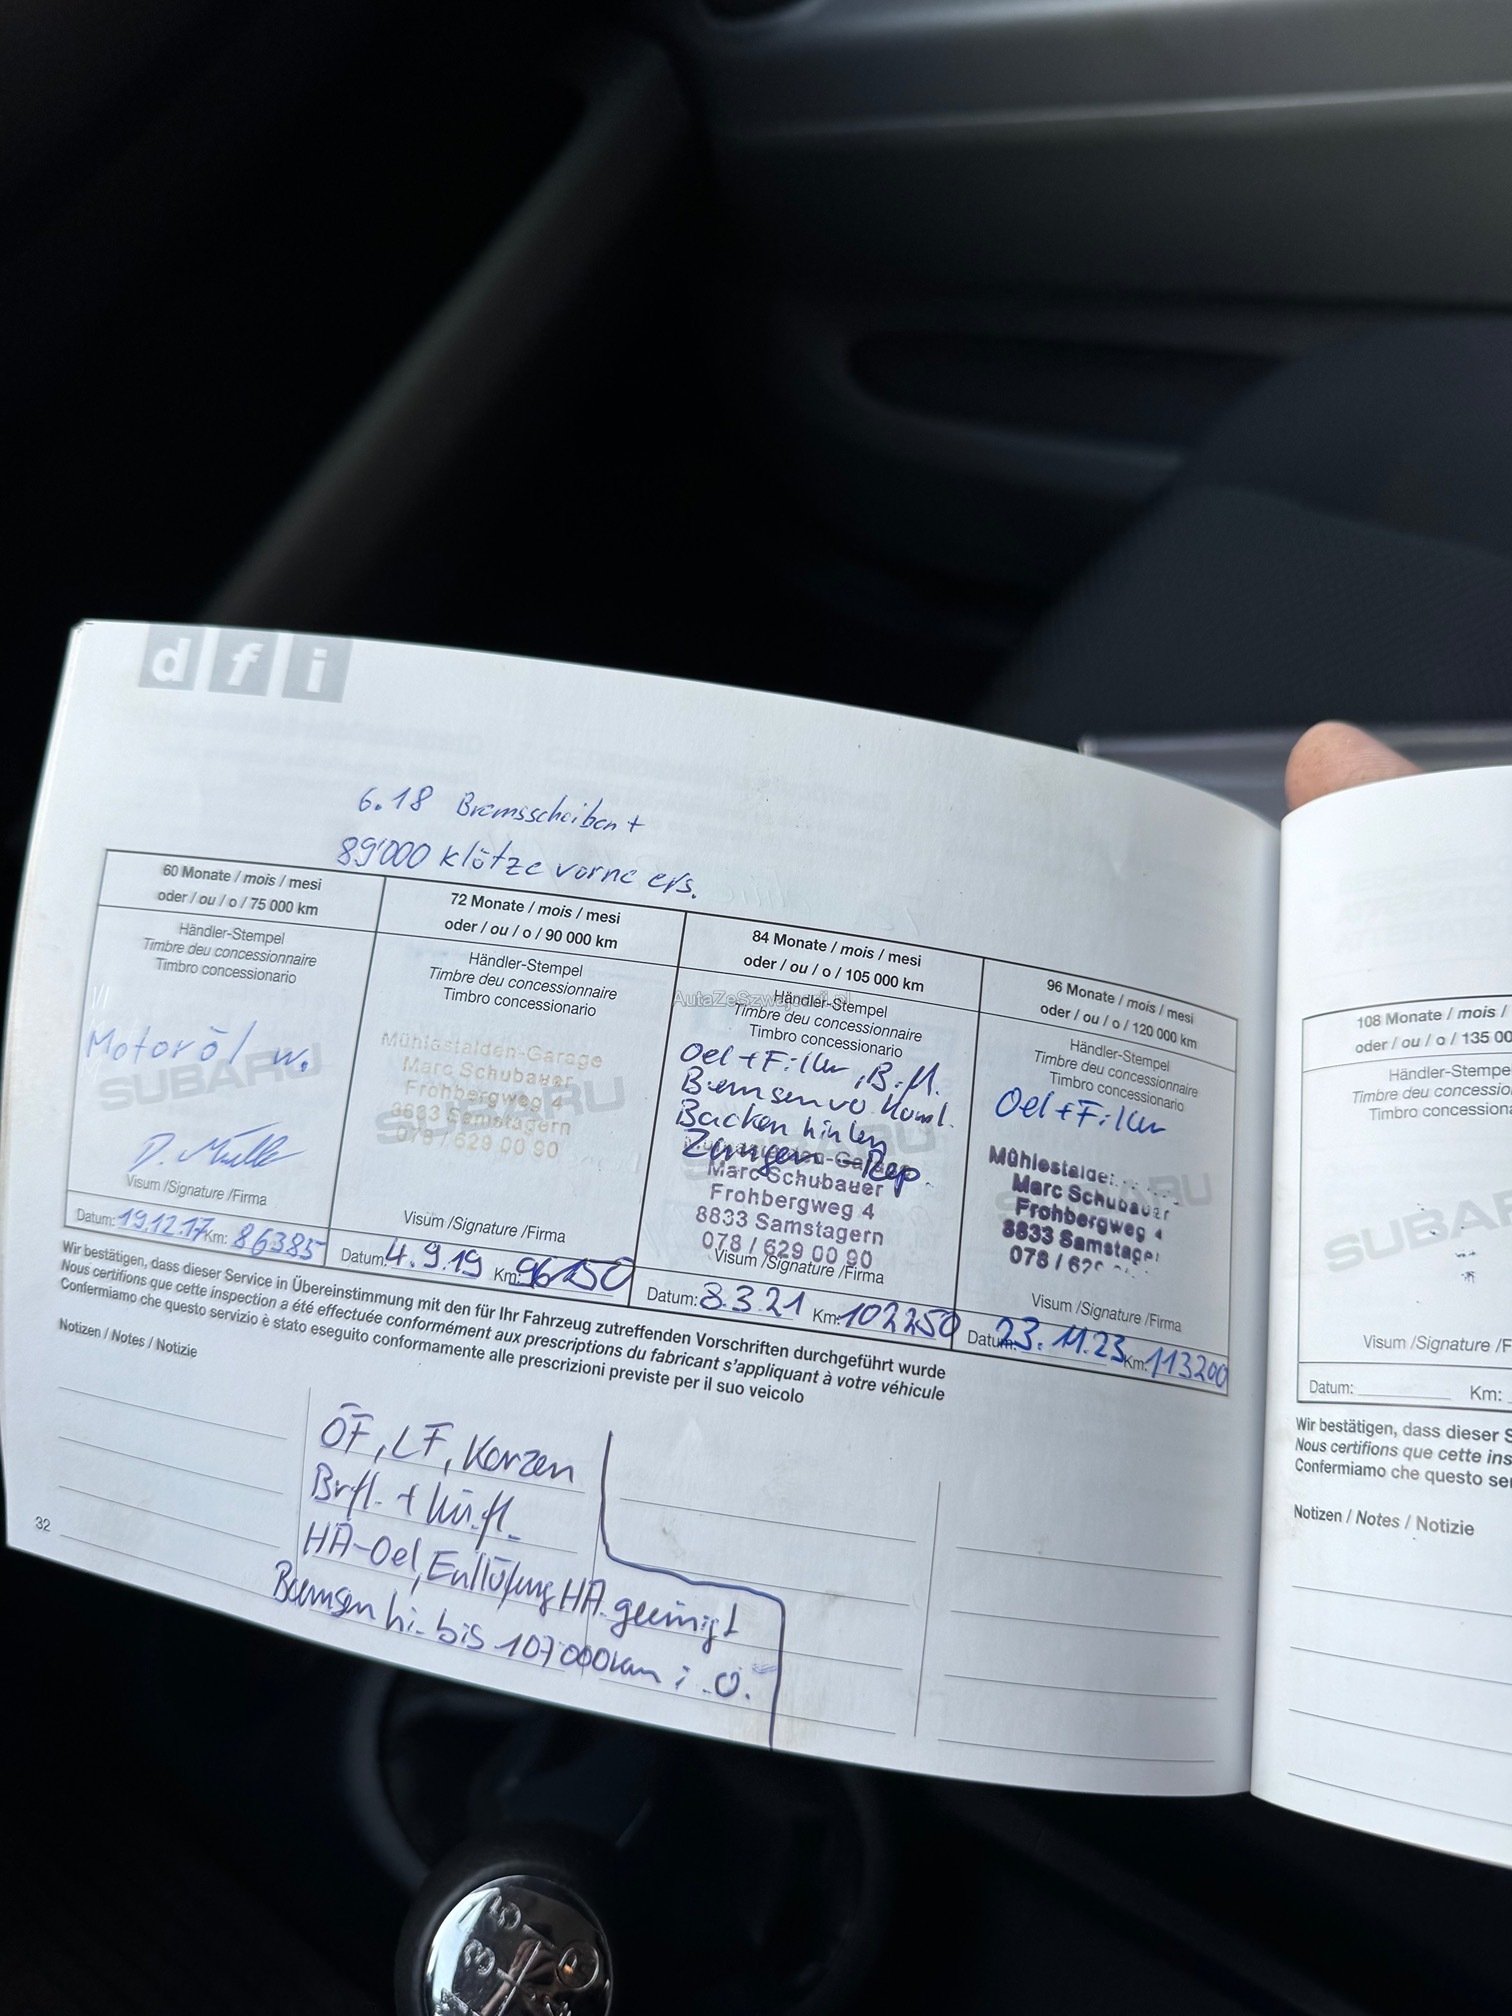 d f i
6.18 Bremsscheiben +
89'000 Klötze vorne ers.
60 Monate / mois / mesi
oder / ou / o / 75 000 km
Händler-Stempel
Timbre deu concessionnaire
Timbro concessionario
Motoröl w.
SUBARU
D. Müller
Visum /Signature /Firma
Datum: 19.12.17 Km: 86385
72 Monate / mois / mesi
oder / ou / o / 90 000 km
Händler-Stempel
Timbre deu concessionnaire
Timbro concessionario
Mühlestalden-Garage
Marc Schubauer
Frohbergweg 4
8833 Samstagern
078 / 629 00 90
SUBARU
Visum /Signature /Firma
Datum: 4.9.19 Km: 96150
84 Monate / mois / mesi
oder / ou / o / 105 000 km
Händler-Stempel
Timbre deu concessionnaire
Timbro concessionario
Oel + Filter, B.fl.
Bremsen vo kompl.
Backen hinten
Zangen-Rep.
Marc Schubauer
Frohbergweg 4
8833 Samstagern
078 / 629 00 90
Visum /Signature /Firma
Datum: 8.3.21 Km: 102250
96 Monate / mois / mesi
oder / ou / o / 120 000 km
Händler-Stempel
Timbre deu concessionnaire
Timbro concessionario
Oel + Filter
Marc Schubauer
Frohbergweg 4
8833
078 /
Visum /Signature /Firma
Datum: 23.11.23 Km: 113200
Wir bestätigen, dass dieser Service in Übereinstimmung mit den für Ihr Fahrzeug zutreffenden Vorschriften durchgeführt wurde
Nous certifions que cette inspection a été effectuée conformément aux prescriptions du fabricant s'appliquant à votre véhicule
Confermiamo che questo servizio è stato eseguito conformamente alle prescrizioni previste per il suo veicolo
Notizen / Notes / Notizie
ÖF, LF, Kerzen
Brfl. + Kü.fl.
HA-Oel, Entlüftung HA gereinigt
Bremsen hi. bis 107'000km i.O.
32
108 Monate / mois /
oder / ou / o / 135 00
Händler-Stempe
Timbre deu concessio
Timbro concession
SUBA
Visum /Signature /F
Datum: Km:
Wir bestätigen, dass dieser S
Nous certifions que cette ins
Confermiamo che questo se
Notizen / Notes / Notizie
5
3